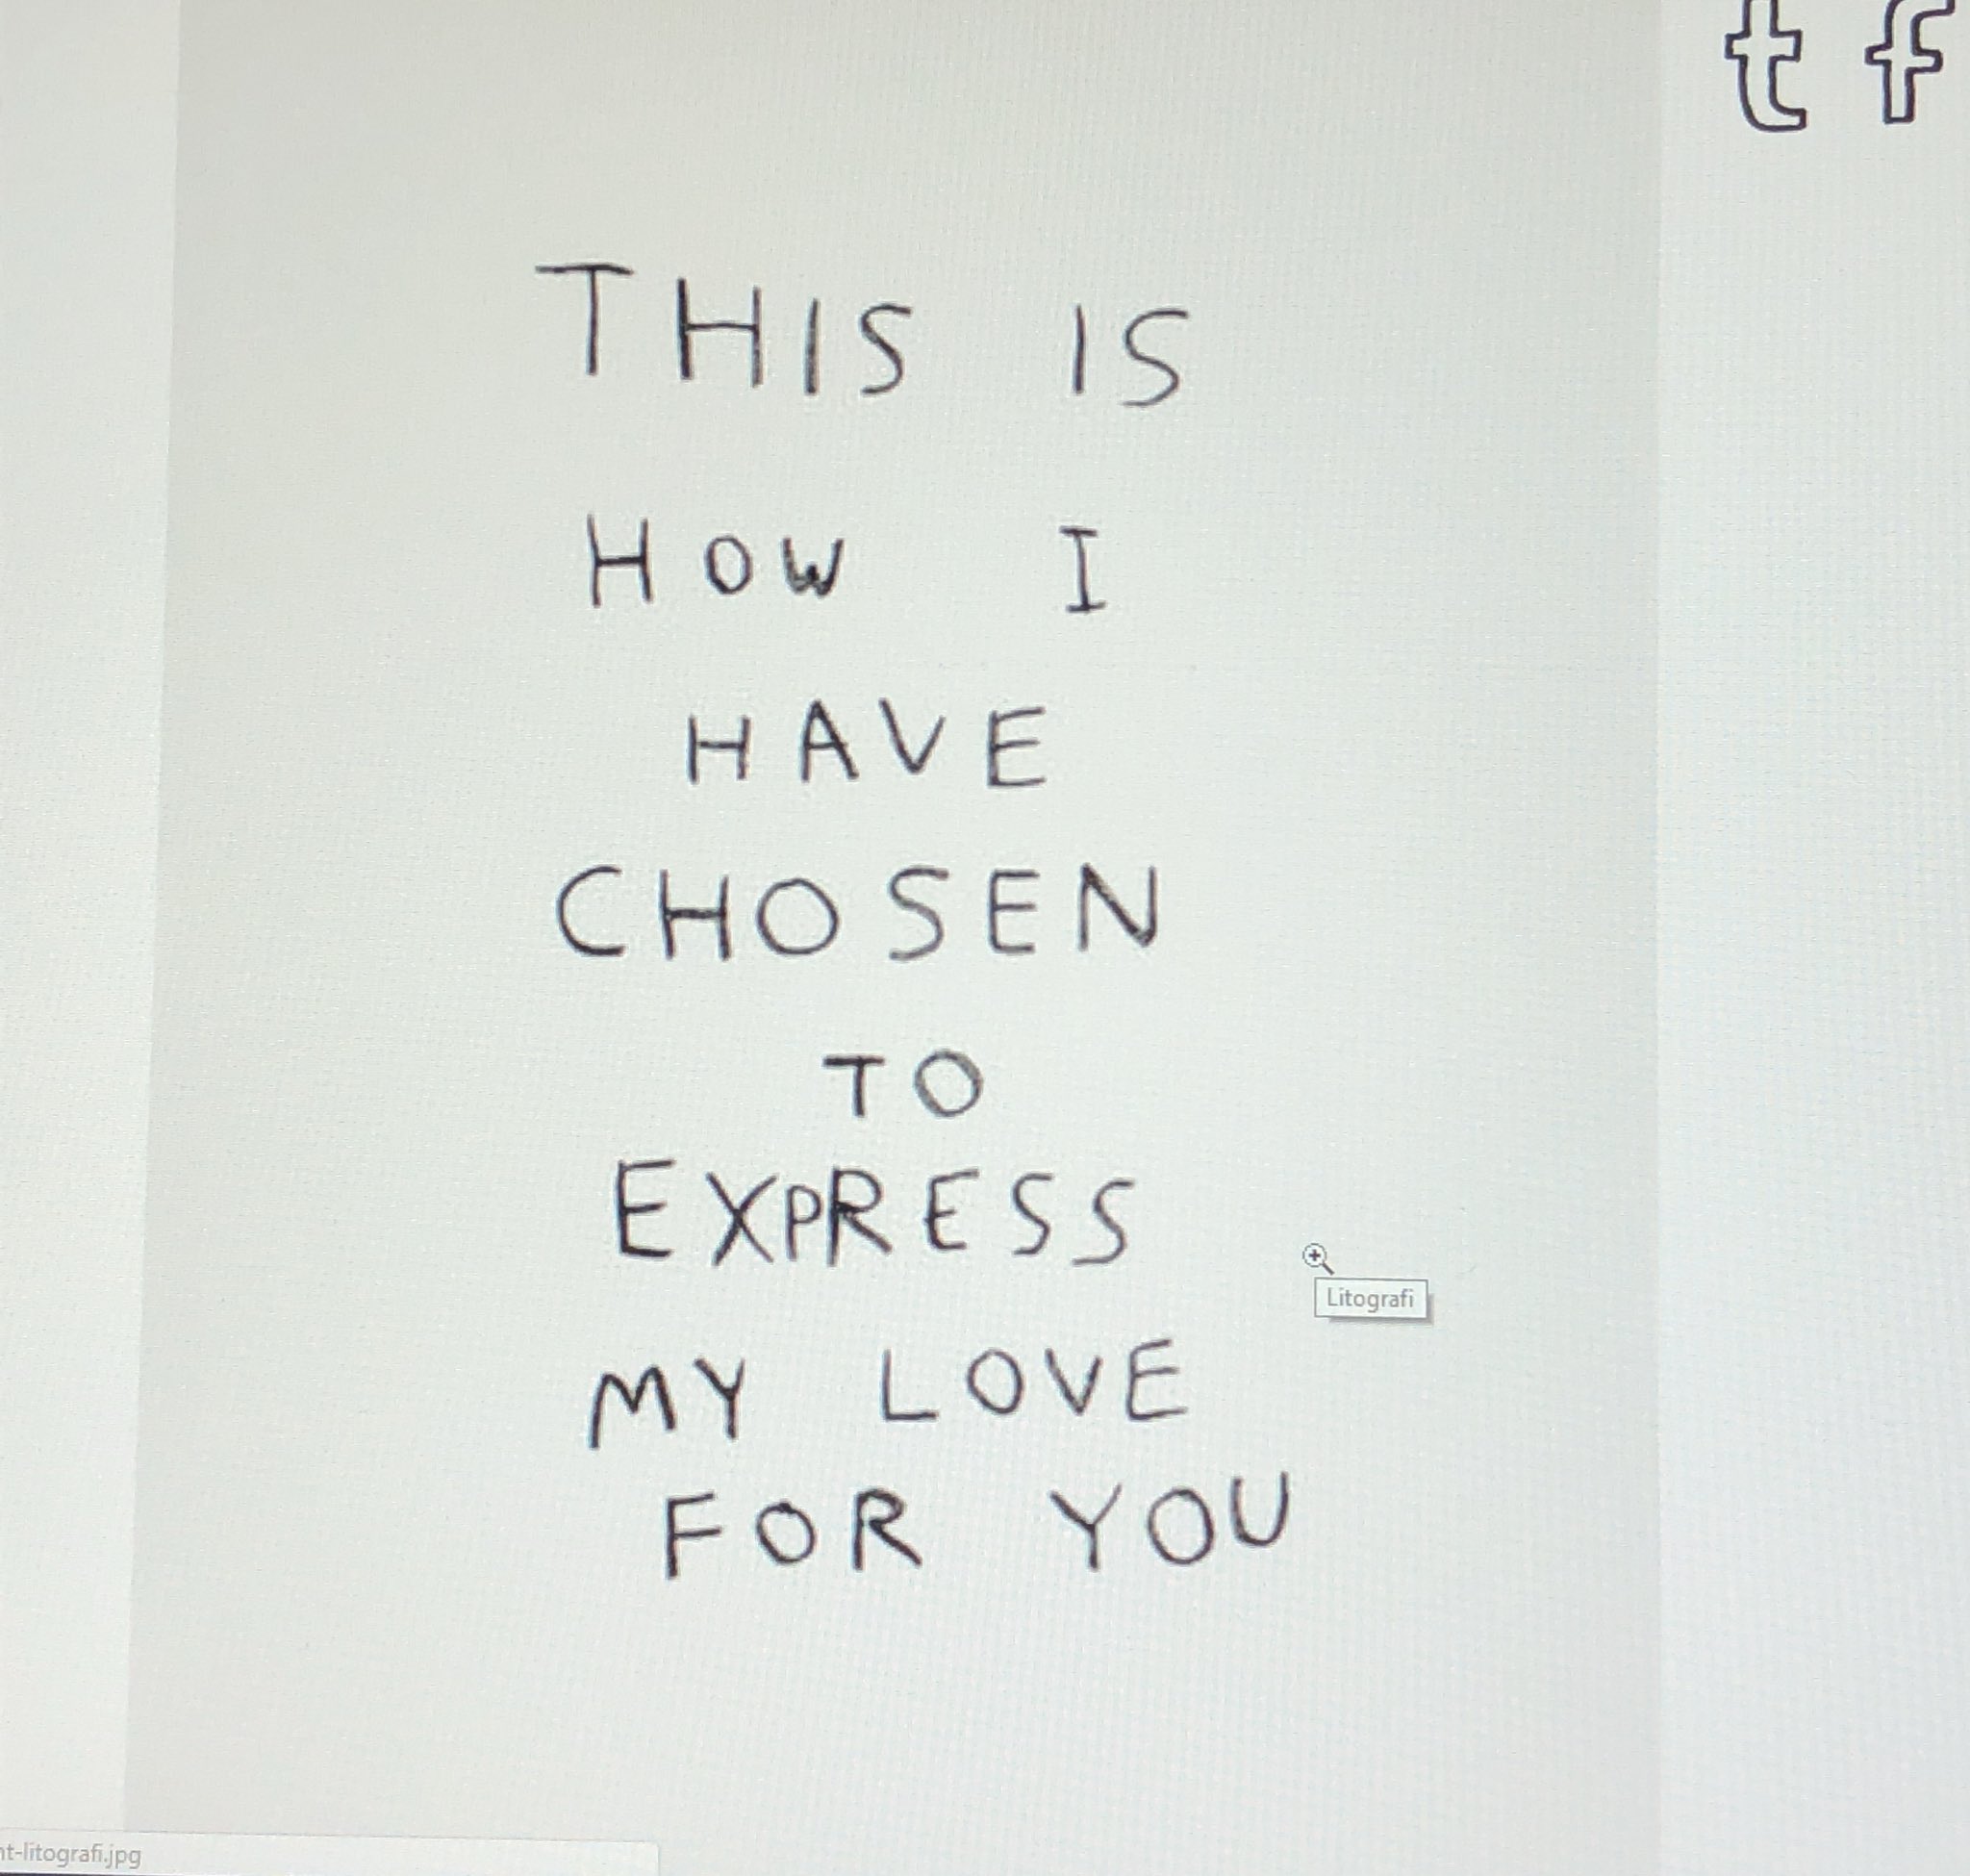 t f
THIS IS
HOW I
HAVE
CHOSEN
TO
EXPRESS
Litografi
MY LOVE
FOR YOU
nt-litografi.jpg